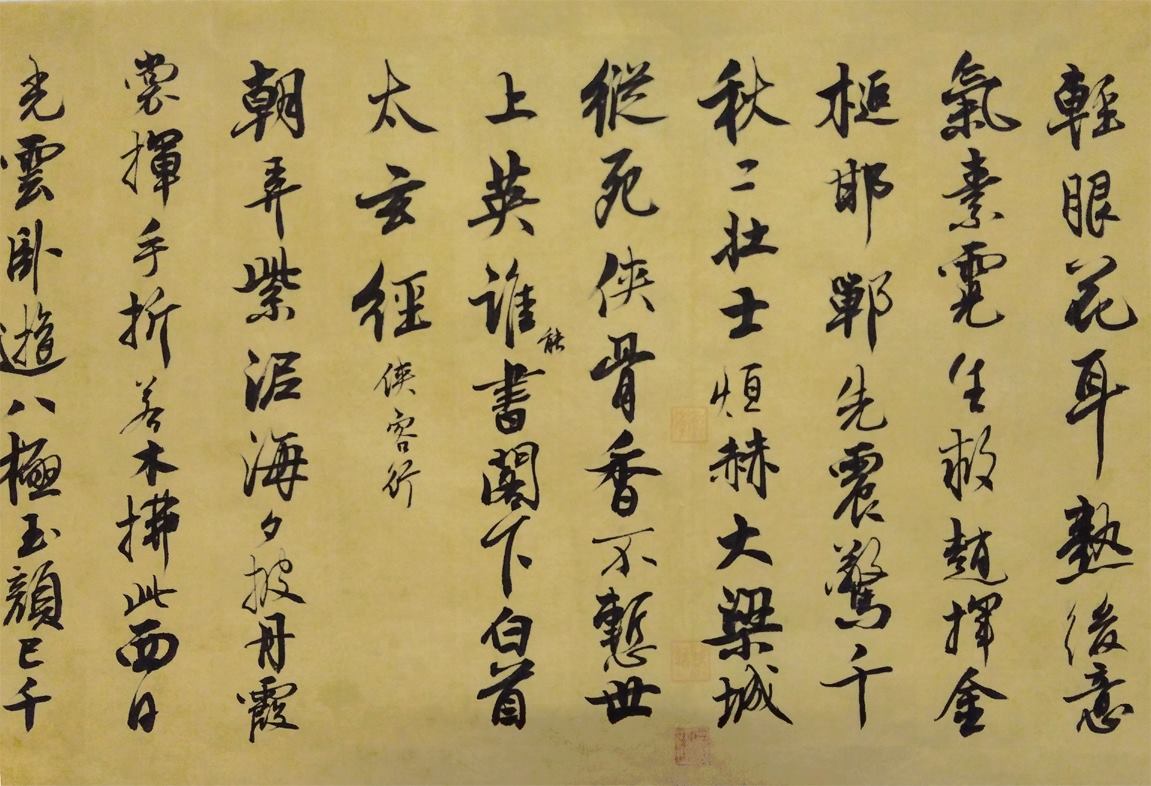 輕眼花耳熱後意
氣素霓生救趙揮金
槌邯鄲先震驚千
秋二壯士烜赫大梁城
縱死俠骨香不慙世
上英誰能書閣下白首
太玄經 俠客行
朝弄紫泥海夕披丹霞
裳揮手折若木拂此西日
光雲卧遊八極玉顏已千